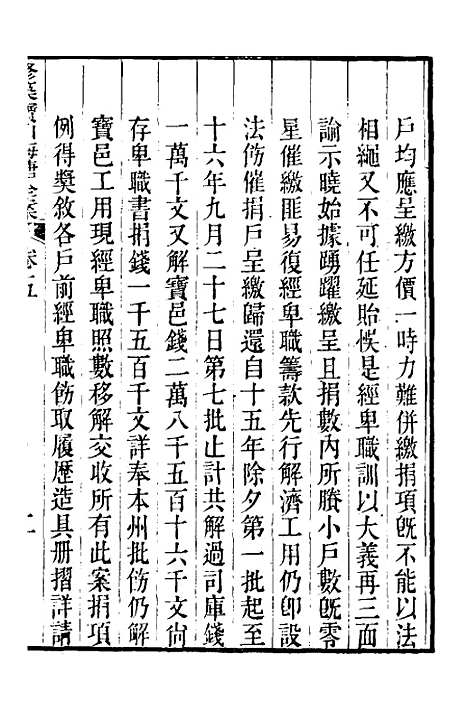 戶均應呈繳方價一時力難併繳捐項旣不能以法
相繩又不可任延貽悞是經卑職訓以大義再三面
諭示曉始據踴躍繳呈且捐數內所賸小戶數旣零
星催繳匪易復經卑職籌款先行解濟工用仍卽設
法飭催捐戶呈繳歸還自十五年除夕第一批起至
十六年九月二十七日第七批止計共解過司庫錢
一萬千文又解寶邑錢二萬八千五百十六千文尙
存卑職書捐錢一千五百千文詳奉本州批飭仍解
寶邑工用現經卑職照數移解交收所有此案捐項
例得獎敘各戶前經卑職飭取履歷造具册摺詳請
卷五